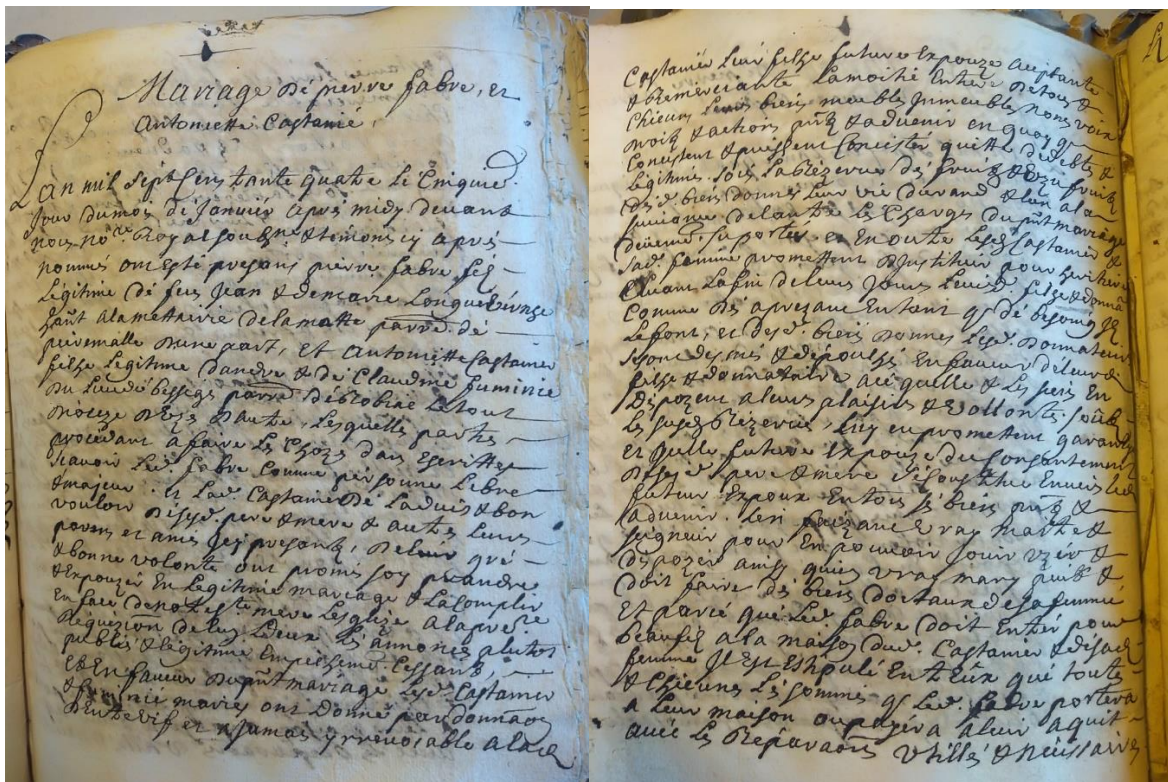 Mariage de pierre fabre, et
Antoniette Castanié,
L'an mil sept Cens trante quatre Le Cinquie.
Jour du mois de Janvier apres midy devant
nous no.re Royal soubz.ne & temoins cy apres
nommés ont esté presans pierre fabre fils
Legitime de feu Jean & de marie Longue
hant a la mettairie de la matte parre. de
peiremalle d'une part, et Antoniette Castanier
fille Legitime d'andre & de Claudine fuminie
du Lieu de bessege parre. de Robiac Le tout
Dioceze D'uzes D'autre, Lesquelles parties
procedant a faire Les Chozes dans Escrittes
scavoir Led. fabre Comme personne Libre
& majeur. et Lad. Castanier De L'advis & bon
vouloir Desd. pere & mere & autres Leurs
parens et amis Icy presants, De leur gré
& bonne volonte ont promis soy prandre
& Expouzer En Legitime mariage & L'acomplir
En face de notre Ste mere Lesglize a la pre.re
Requizion de luy Deux Les annonces plutot
publiés & Legitime Empechement Cessant,
Et En faveur Du pnt mariage Lesd. Castanier
& fuminié mariés ont Donné par donnaon
D'entre vifs et a Jamais yrrevocable a lad.
Castanier Leur fille future Expouze aceptante
& Remerciante La moitié Entiere De tous &
Chacuns Leurs biens meubles Inmeubles noms voix
droits & actions pnts & advenir en quoy qu
Concistent & puissent Concister quitte de debtes &
Legitimes. sous La Rezerve des fruits & Uzufruits
desd. biens donnés Leur vie durand & L'un a la
suivance de L'autre Les Charges du pnt mariage
 suporter, en En outre Lesd. Castanier &
sad. femme promettent D'Instituer pour heritiere
avant La fin de leurs Jours Leurd. fille & donnare
Comme Des a prezant En tant q de bezoing Ils
Le font, et desd. biens Donnés Lesd. Donnateurs
se sont desmis & depoulhés En faveur de leurd.
fille & donnataire ace quelle & Les siens En
Dispozent a leurs plaisirs & vollontés, soûb
Les susd. Rezerves Luy en promettent garantie
et quelle future Expouze du Consantement
Desd. pere & mere s'est Constitue Envers Led.
futeur Expoux En tous ses biens pnts &
advenir. Len faizant vray maitre &
seigneur pour En pouvoir Jouir uzer &
dispozer ainsy qun vray mary peut &
doit faire des biens doctaux de sa femme
Et parce que Led. fabre doit Entrer pour
beaufils a la maison dud. Castanier & de sad.
femme Il Est Esthipulé Entr'Eux que toutes
& Chacunes Les sommes q Led. fabre portera
a Leur maison ou payera a Leur aquit
avec Les Reparaons Uthilles & necessaires